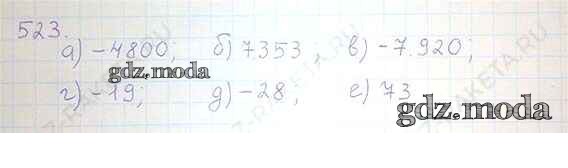 523.
а) -4800; б) 7353 в) -7.920;
gdz.moda
г) -19; д) -28; е) 73
gdz.moda
Z-RAKETA.RU